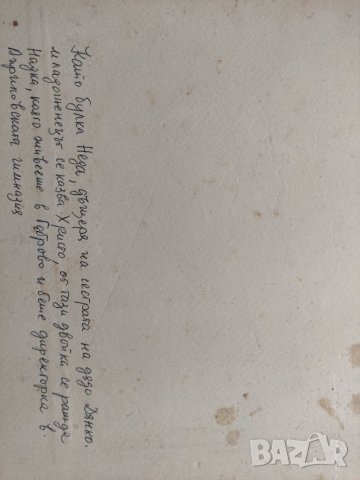 Като булка Неда, дъщеря на сестрата на дядо Данко.
младоженецът се казва Христо, от тази двойка се ражда
Надка, която живееше в Габрово и беше директорка в.
Априловската гимназия
BAZAR.BG